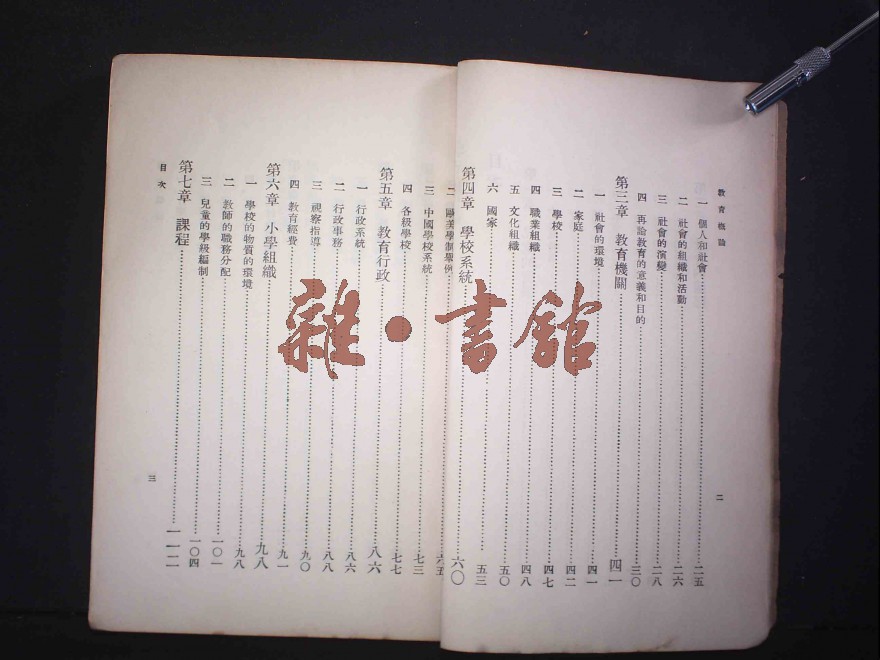 教育概論
一 個人和社會 二五
二 社會的組織和活動 二六
三 社會的演變 二八
四 再論教育的意義和目的 三〇
第三章 教育機關 四一
一 社會的環境 四一
二 家庭 四二
三 學校 四七
四 職業組織 四八
五 文化組織 五〇
六 國家 五三
二
第四章 學校系統 六〇
二 歐美學制舉例 六五
三 中國學校系統 七三
四 各級學校 七七
第五章 教育行政 八六
一 行政系統 八六
二 行政事務 八八
三 視察指導 九〇
四 教育經費 九一
第六章 小學組織 九八
一 學校的物質的環境 九八
二 教師的職務分配 一〇一
三 兒童的學級編制 一〇四
第七章 課程 一一二
目次
三
雜·書館